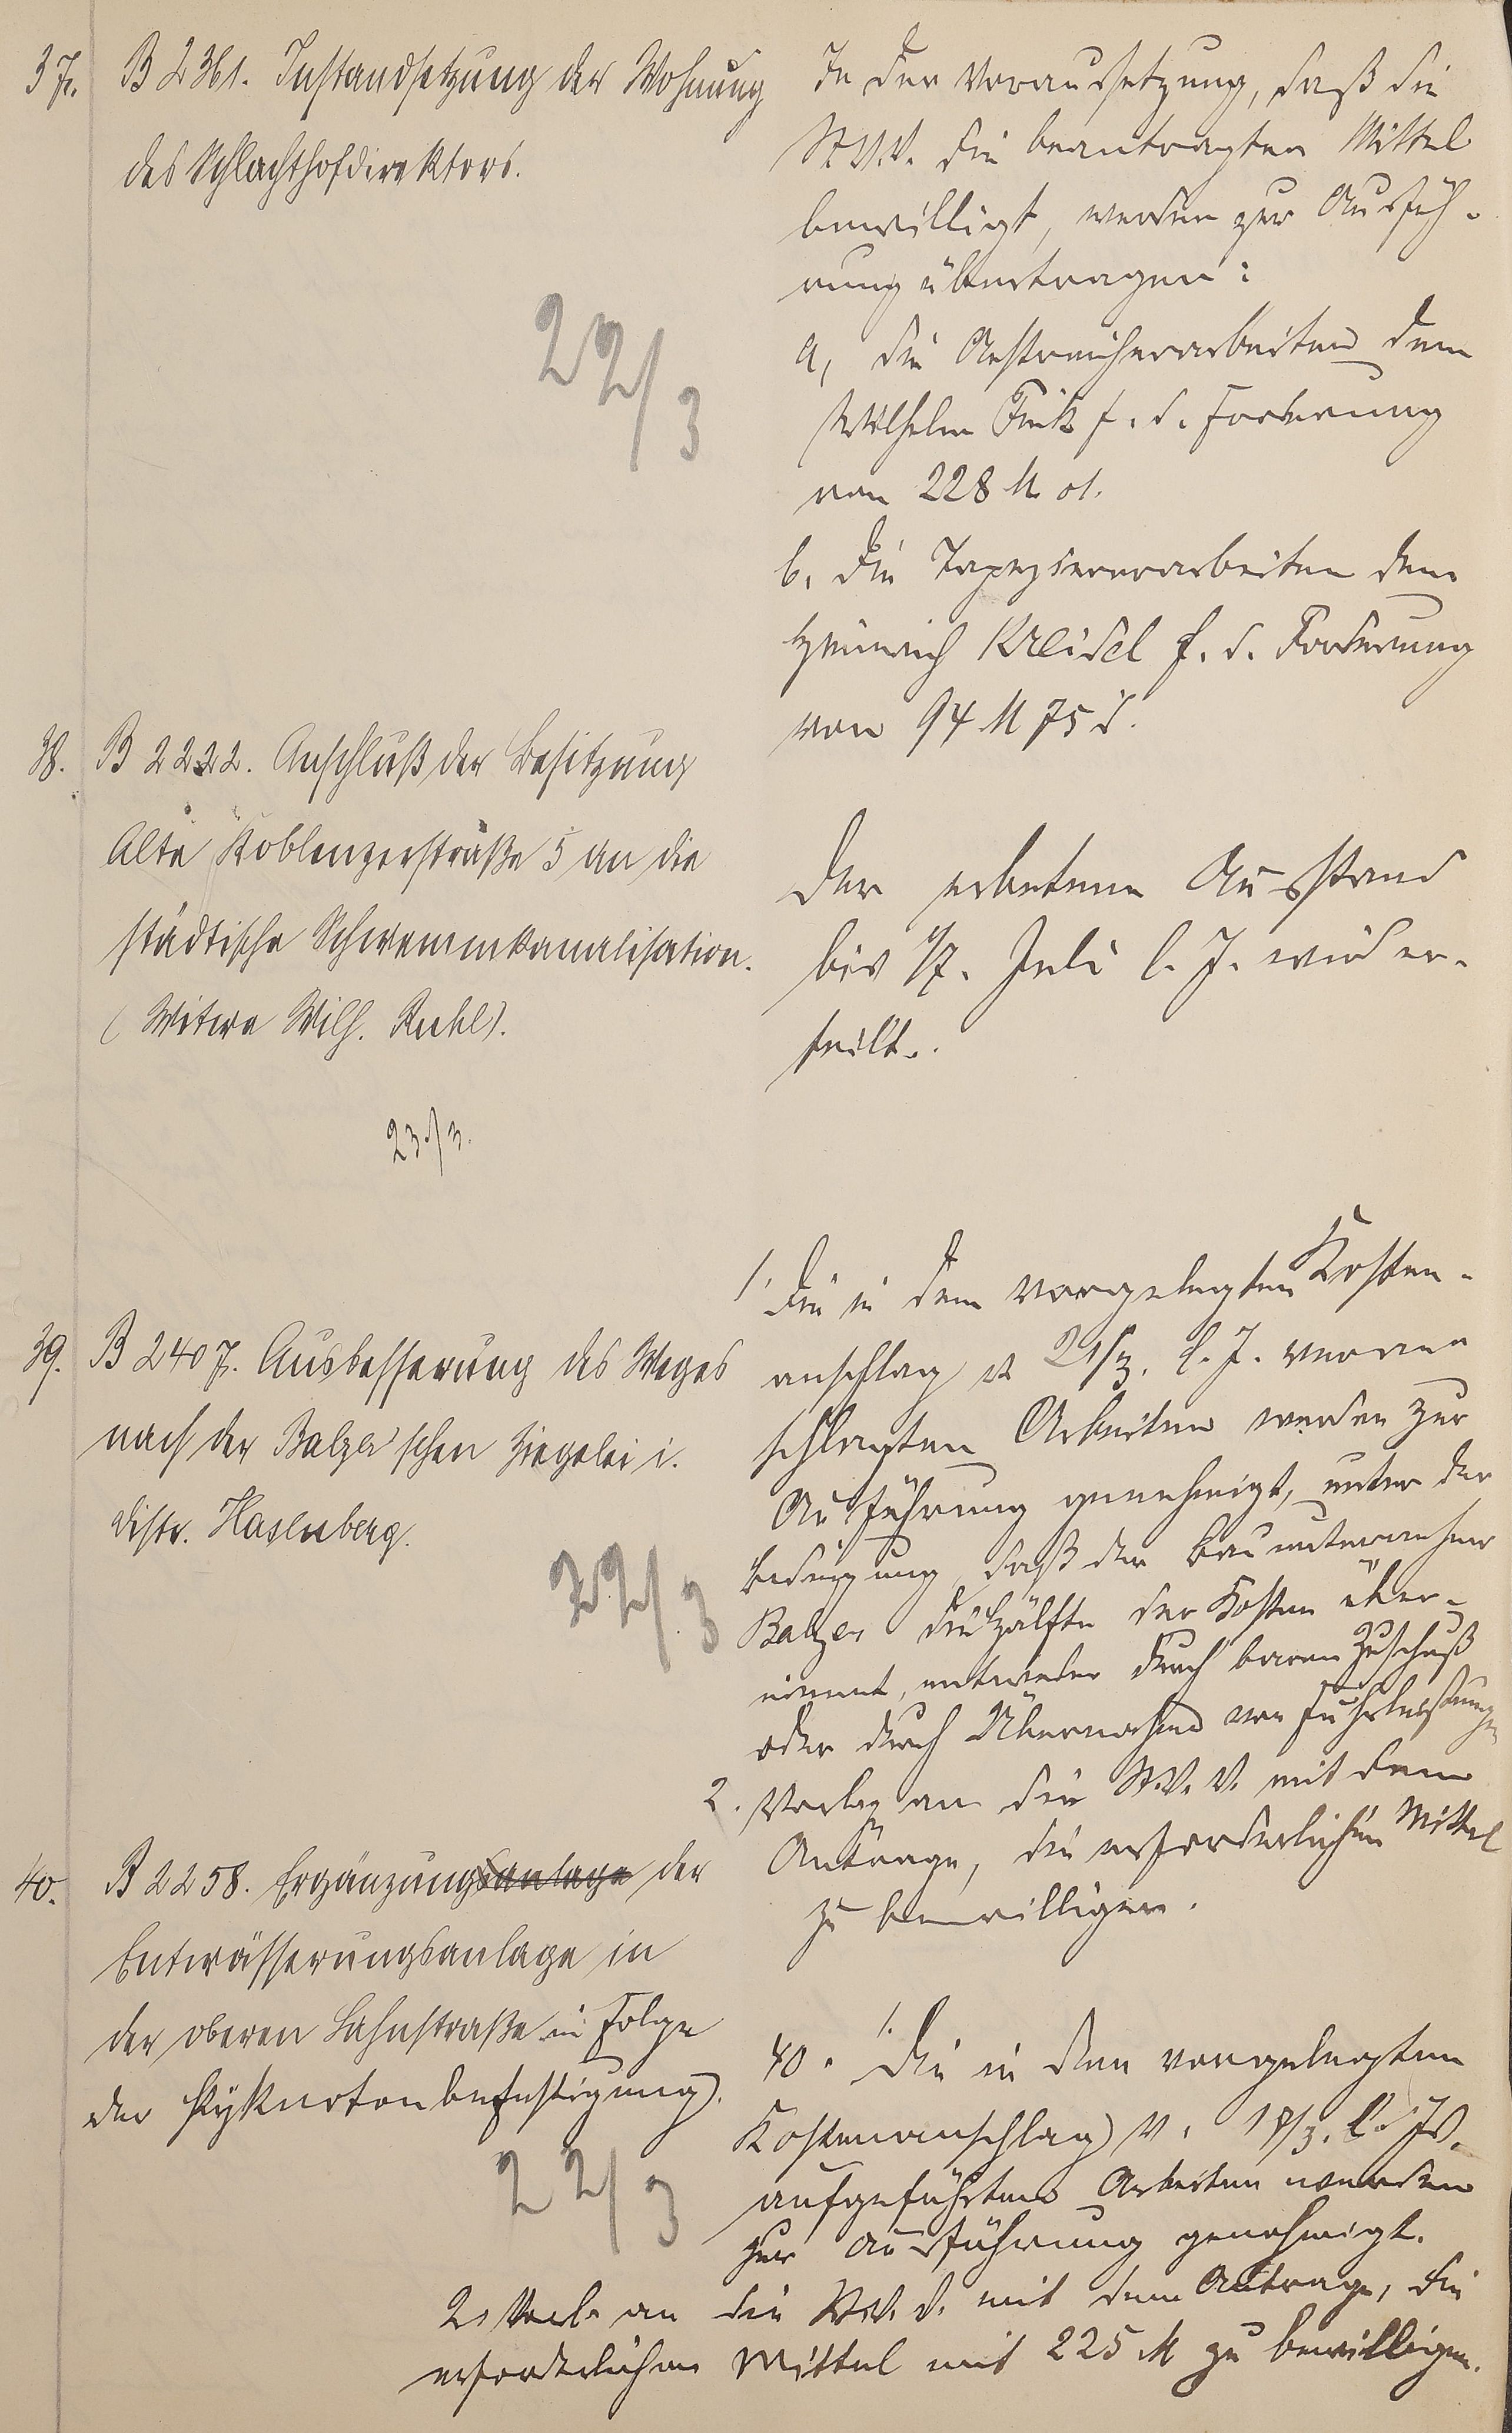 37. B 2361. Instandsetzung der Wohnung
des Schlachthofdirektors.
22/3
In der Voraussetzung, daß die
St.V.V. die beantragten Mittel
bewilligt, werden zur Ausfüh-
rung übertragen:
a, die Anstreicherarbeiten dem
Wilhelm Fink f. d. Forderung
von 228 M
b, die Tapeziererarbeiten dem
Heinrich Kreidel f. d. Forderung
von 94 M 75 d.
38. B 2222. Anschluß der Besitzung
Alte Koblenzerstraße 5 an die
städtische Schwemmkanalisation.
(Witwe Wilh. Ruhl).
23/3.
Der erbetene Ausstand
bis 1/7. Juli l. J. wird er-
teilt.
39. B 2407. Ausbesserung des Weges
nach der Balzer'schen Ziegelei i.
Distr. Hasenberg.
22/3
1. Die in dem vorgelegten Kosten-
anschlag v. 21/3. l. J. veran
schlagten Arbeiten werden zur
Ausführung genehmigt, unter der
Bedingung, daß der Bauunternehmer
Balzer die Hälfte der Kosten über-
nimmt, entweder durch baren Zuschuß
oder durch Übernahme von Fuhrleistungen
2. Vorlage an die St.V.V. mit dem
Antrage, die erforderlichen Mittel
zu bewilligen.
40. B 2258. Ergänzungsanlage der
Entwässerungsanlage in
der oberen Lahnstraße in Folge
der Pyknotonbefestigung.
22/3
40. 1. Die in dem vorgelegten
Kostenanschlag v. 18/3. l. Js.
aufgeführten Arbeiten werden
zur Ausführung genehmigt.
2. Vorl. an die St.V.V. mit dem Antrage, die
erforderlichen Mittel mit 225 M zu bewilligen.